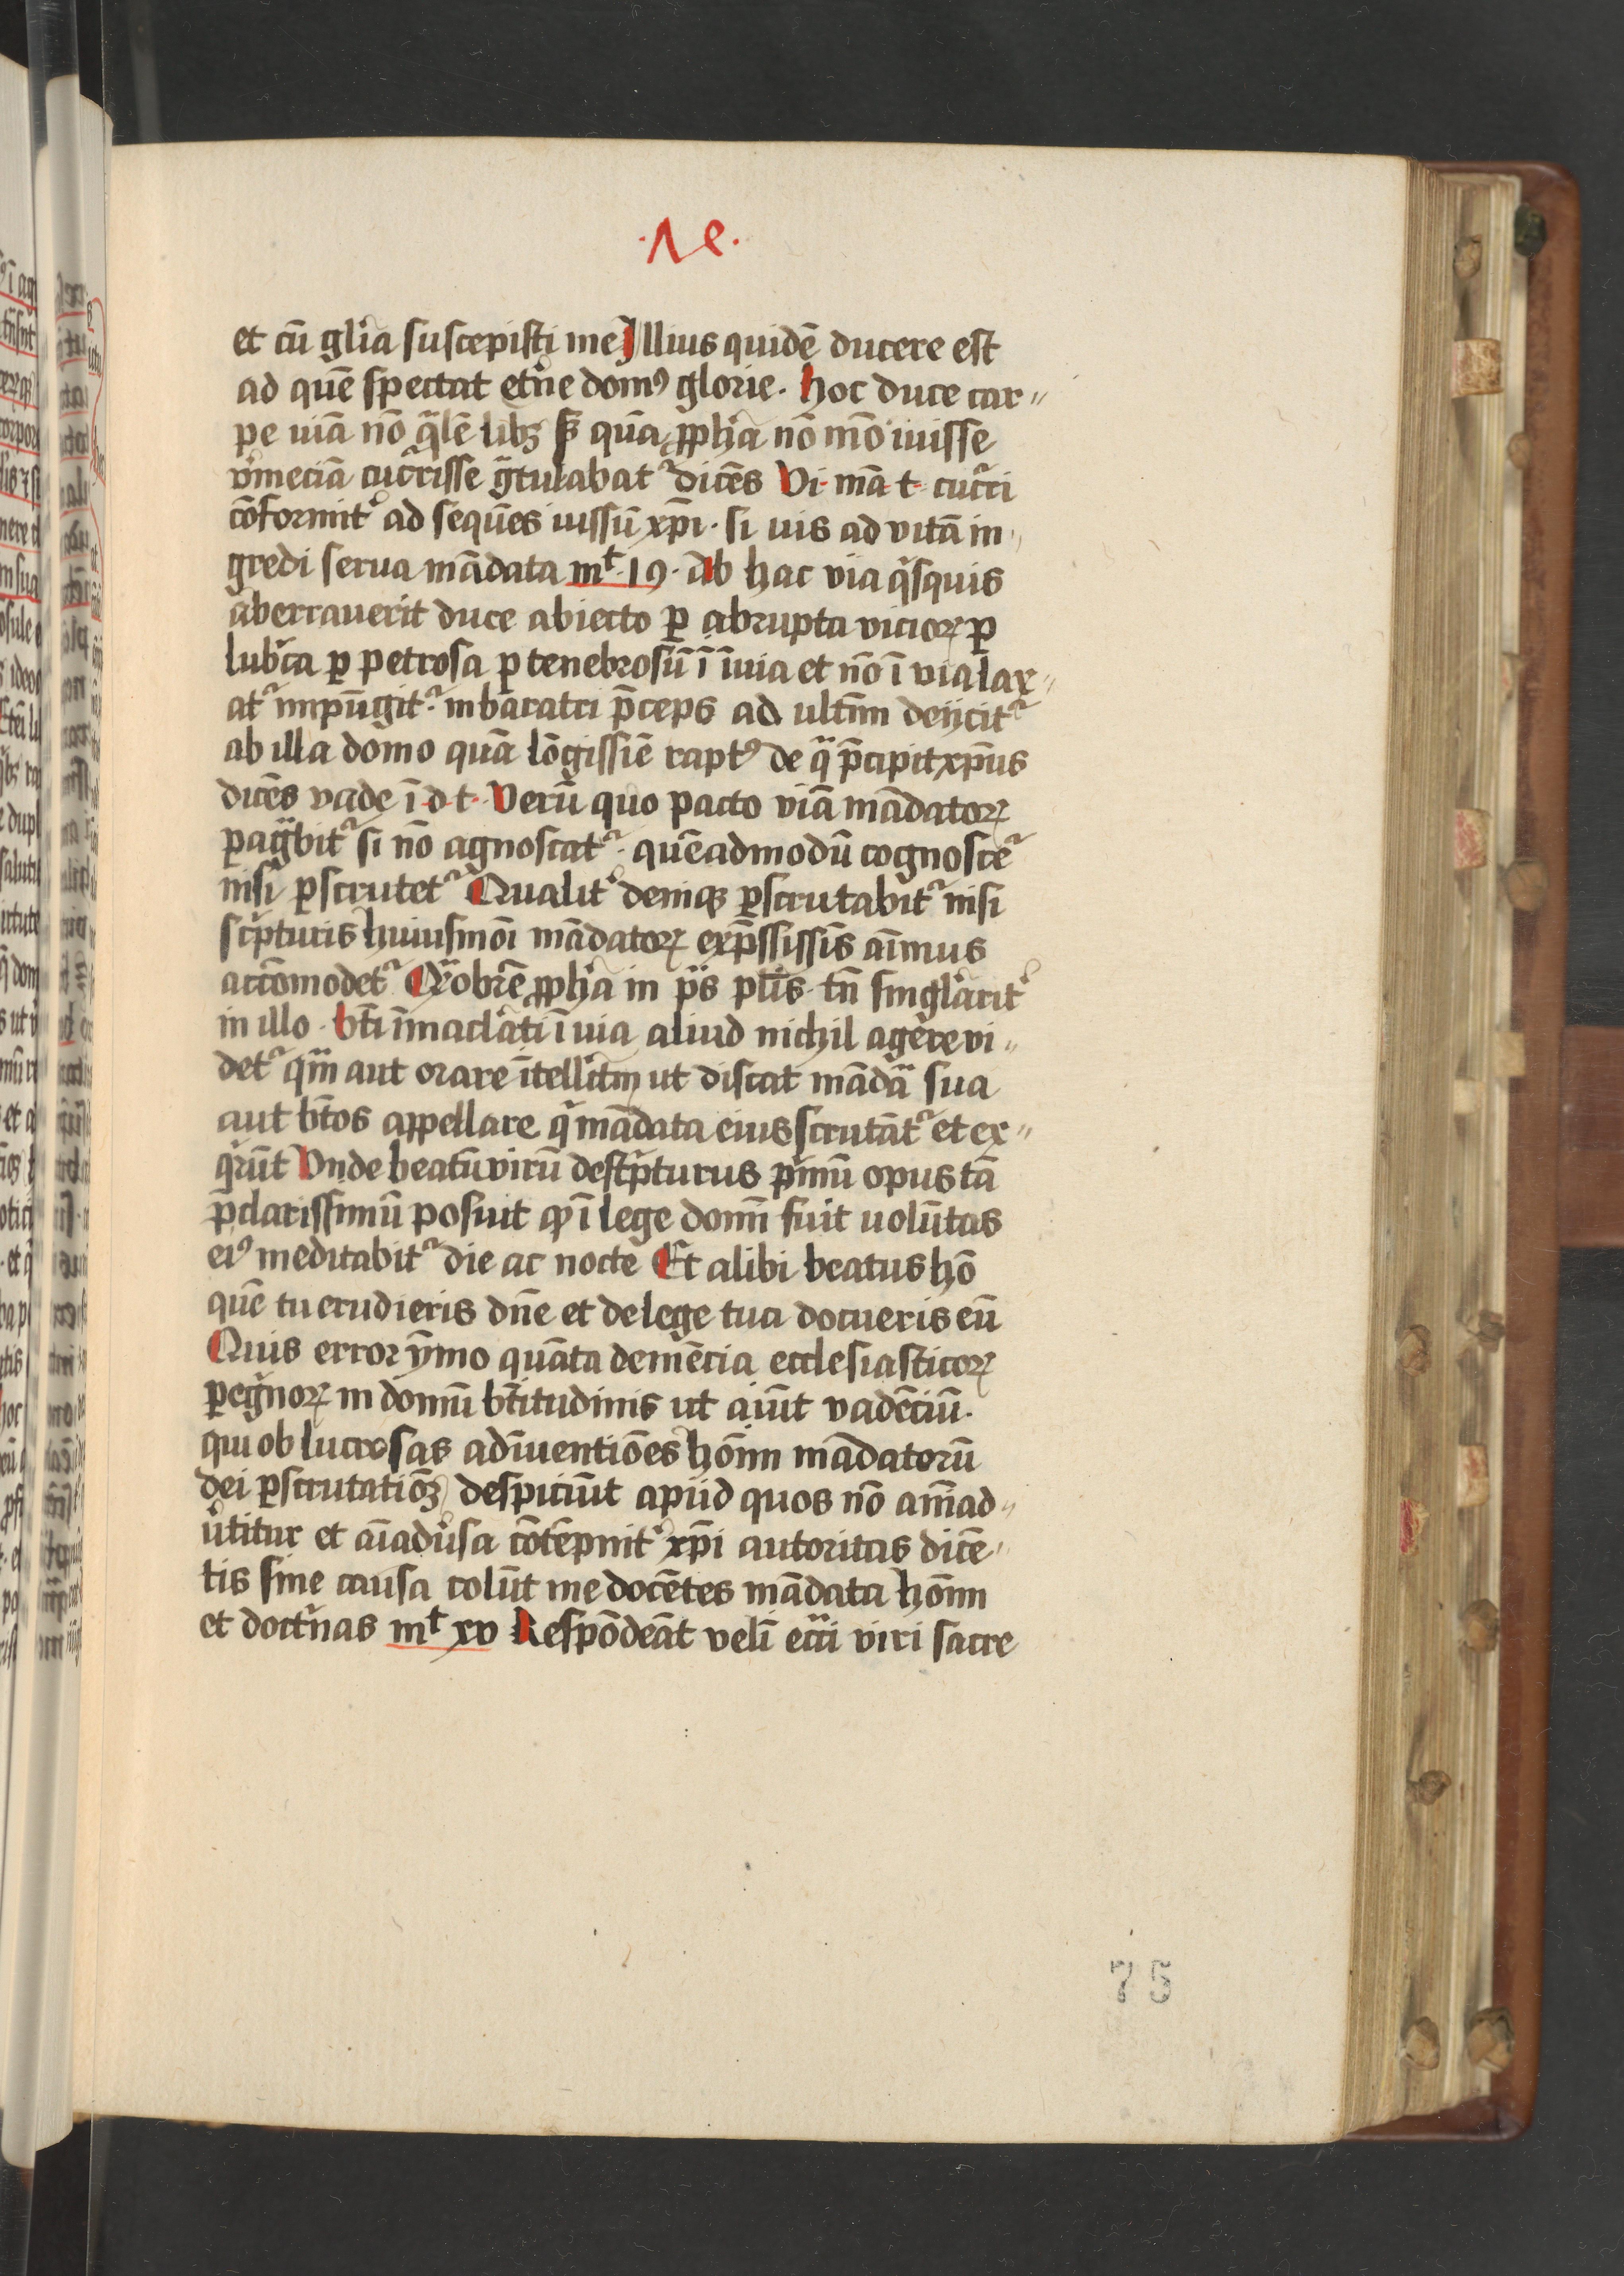 .1e.
et cū gl̄ia suscepisti me Illius quidē ducere est
ad quē spectat et̾ne domꝰ glorie. hoc duce car〃
pe uiā nō q̄lē libꝫ sꝫ quā ꝓph̄a nō mō iuisse
cucrrisse g̃tulabat᷑ dicēs Vi· mā t· cucrri
cōformit̾ ad sequēs iussū xp̄i. si uis ad vitā in〃
gredi serua mādata mt 19. Ab hac via q̇squis
aberrauerit duce abiecto ꝑ abrupta vicioꝝ ꝑ
lubͥca ꝑ petrosa ꝑ tenebrosū ī īuia et nō ī via lax〃
at᷑ impūgit᷑. in baratri p̄ceps ad ultīm deijcit᷑
ab illa domo quā lōgissīe raptꝰ de q̄ p̄cipit xp̄us
dicēs vade ī·d·t· Verū quo pacto viā mādatoꝝ
ꝑag̃bit᷑ si nō agnoscat᷑. quēadmodū cognoscet᷑
nisi ꝑscrutet᷑ Qualit̾ deniqꝫ ꝑscrutabit᷑ nisi
scͥpturis huiusmōi mādatoꝝ exp̄ssissīs aīmus
accōmodet᷑ Q̃obrē ꝓph̄a in p̄s pl̄īs. tn̄ singl̄arit̾
in illo. bt̄i īmacl̄ati ī uia aliud nichil agere vi〃
det᷑ q̃m aut orare ītellc̄tm ut discat mādã sua
aut bt̄os appellare qͥ mādata eius scrutāt᷑ et ex〃
qͥrūt Vnde beatū virū descͥpturus pͥmū opus tā
p̄clarissimū posuit ꝙ ī lege domī fuit uolūtas
eiꝰ meditabit᷑ die ac nocte Et alibi beatus hō
quē tu erudieris dn̄e et de lege tua docueris eū
Quis error ȳmo quāta demēcia ecclesiasticoꝝ
ꝑegͥnoꝝ in domū bt̄itudinis ut aiūt vadēciū.
qui ob lucrosas adīuentiōes hōīm mādatorū
dei ꝑscrutatiōꝫ despiciūt apud quos nō aīad〃
u̾titur et aīadu̾sa cōtēpnit᷑ xp̄i autoritas dicē〃
tis sine causa colūt me docētes mādata hōīm
et doctͥnas mt xv Respōdeāt velī ec̄ci viri sacre
75